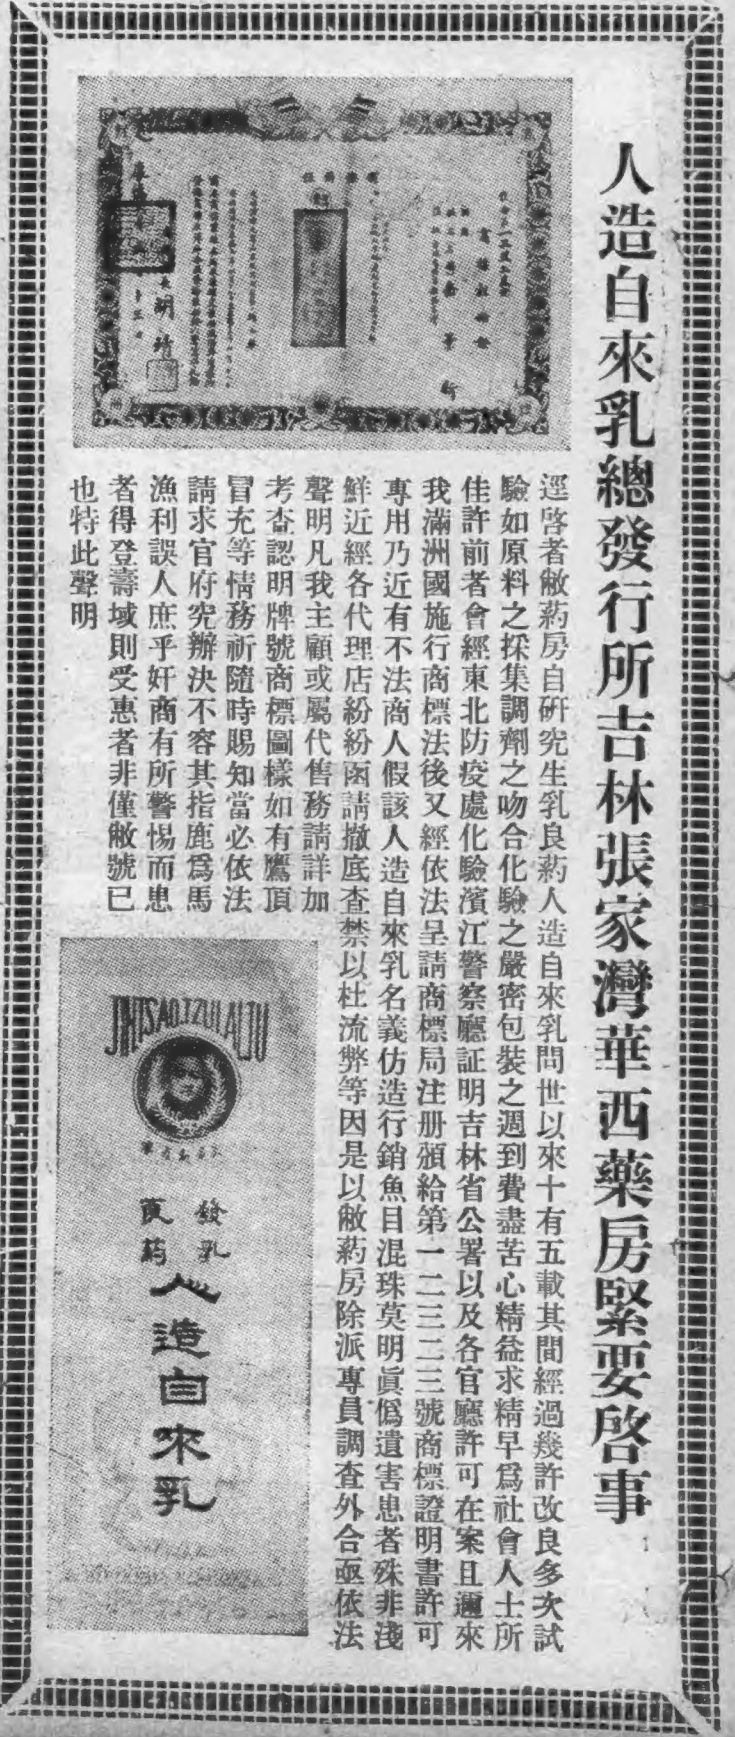 人造自來乳總發行所吉林張家灣華西藥房緊要啓事
逕啓者敝葯房自硏究生乳良葯人造自來乳問世以來十有五載其間經過幾許改良多次試
驗如原料之採集調劑之吻合化驗之嚴密包裝之週到費盡苦心精益求精早爲社會人士所
佳許前者會經東北防疫處化驗濱江警察廳証明吉林省公署以及各官廳許可在案且邇來
我滿洲國施行商標法後又經依法呈請商標局注册頒給第一二三二三號商標證明書許可
專用乃近有不法商人假該人造自來乳名義仿造行銷魚目混珠莫明眞僞遺害患者殊非淺
鮮近經各代理店紛紛函請撤底查禁以杜流弊等因是以敝葯房除派專員調查外合亟依法
聲明凡我主顧或屬代售務請詳加
考查認明牌號商標圖樣如有鷹頂
冒充等情務祈隨時賜知當必依法
請求官府究辦決不容其指鹿爲馬
漁利誤人庶乎奸商有所警惕而患
者得登壽域則受惠者非僅敝號已
也特此聲明
JINTSAOTZULAIJU
發乳
良葯
人造自來乳